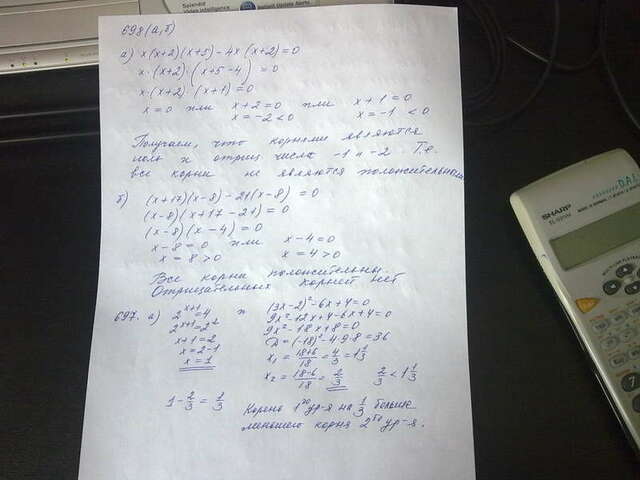 698 (а, б)
а) x(x+2)(x+5) - 4x(x+2) = 0
x·(x+2)·(x+5-4) = 0
x·(x+2)·(x+1) = 0
x = 0 или x+2 = 0 или x+1 = 0
x = -2 < 0 x = -1 < 0
Получаем, что корнями являются
ноль и отриц числа -1 и -2. Т.е.
все корни не являются положительными
б) (x+17)(x-8) - 21(x-8) = 0
(x-8)(x+17-21) = 0
(x-8)(x-4) = 0
x-8 = 0 или x-4 = 0
x = 8 > 0 x = 4 > 0
Все корни положительны.
Отрицательных корней нет
697. а) 2^{x+1} = 4 и (3x-2)² - 6x + 4 = 0
2^{x+1} = 2² 9x² - 12x + 4 - 6x + 4 = 0
x+1 = 2 9x² - 18x + 8 = 0
x = 2-1 D = (-18)² - 4·9·8 = 36
x = 1 x₁ = (18+6)/18 = 4/3 = 1 1/3
x₂ = (18-6)/18 = 2/3 2/3 < 1 1/3
1 - 2/3 = 1/3 Корень 1го ур-я на 1/3 больше
меньшего корня 2го ур-я.
SHARP